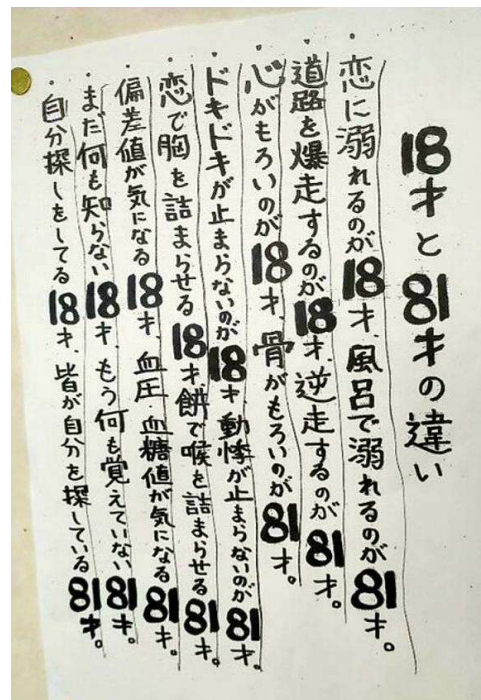 18才と81才の違い
恋に溺れるのが18才、風呂で溺れるのが81才。
道路を爆走するのが18才、逆走するのが81才。
心がもろいのが18才、骨がもろいのが81才。
ドキドキが止まらないのが18才動悸が止まらないのが81才。
恋で胸を詰まらせる18才餅で喉を詰まらせる81才。
偏差値が気になる18才、血圧・血糖値が気になる81才。
まだ何も知らない18才、もう何も覚えていない81才。
自分探しをしてる18才、皆が自分を探している81才。